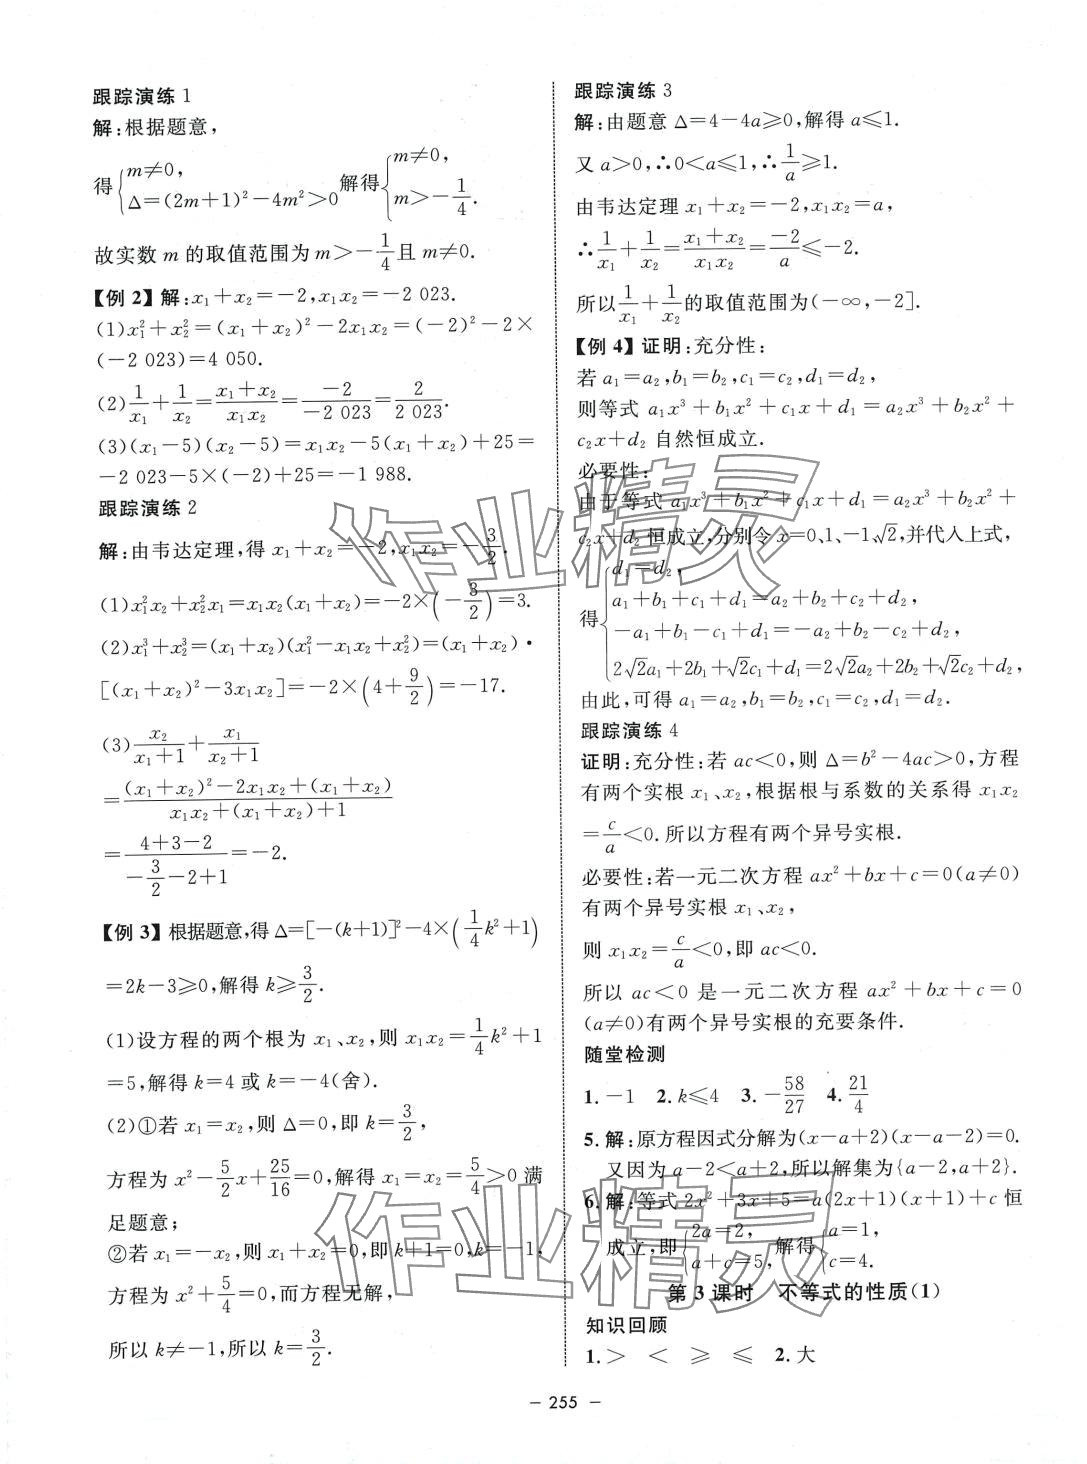 跟踪演练 1
解:根据题意，
得{m≠0, Δ=(2m+1)²-4m²>0 解得{m≠0, m>-1/4.
故实数 m 的取值范围为 m>-1/4且 m≠0.
【例 2】解:x₁+x₂=-2,x₁x₂=-2 023.
(1)x₁²+x₂²=(x₁+x₂)²-2x₁x₂=(-2)²-2×
(-2 023)=4 050.
(2)1/x₁+1/x₂=(x₁+x₂)/(x₁x₂)=-2/(-2 023)=2/(2 023).
(3)(x₁-5)(x₂-5)=x₁x₂-5(x₁+x₂)+25=
-2 023-5×(-2)+25=-1 988.
跟踪演练 2
解:由韦达定理,得 x₁+x₂=-2,x₁x₂=-3/2.
(1)x₁²x₂+x₂²x₁=x₁x₂(x₁+x₂)=-2×(-3/2)=3.
(2)x₁³+x₂³=(x₁+x₂)(x₁²-x₁x₂+x₂²)=(x₁+x₂)·
[(x₁+x₂)²-3x₁x₂]=-2×(4+9/2)=-17.
(3)x₂/(x₁+1)+x₁/(x₂+1)
=((x₁+x₂)²-2x₁x₂+(x₁+x₂))/(x₁x₂+(x₁+x₂)+1)
=(4+3-2)/(-3/2-2+1)=-2.
【例 3】根据题意,得 Δ=[-(k+1)]²-4×(1/4k²+1)
=2k-3≥0,解得 k≥3/2.
(1)设方程的两个根为 x₁、x₂,则 x₁x₂=1/4k²+1
=5,解得 k=4 或 k=-4(舍).
(2)①若 x₁=x₂,则 Δ=0,即 k=3/2,
方程为 x²-5/2x+25/16=0,解得 x₁=x₂=5/4>0 满
足题意;
②若 x₁=-x₂,则 x₁+x₂=0,即 k+1=0,k=-1,
方程为 x²+5/4=0,而方程无解,
所以 k≠-1,所以 k=3/2.
跟踪演练 3
解:由题意 Δ=4-4a≥0,解得 a≤1.
又 a>0,∴0<a≤1,∴1/a≥1.
由韦达定理 x₁+x₂=-2,x₁x₂=a,
∴1/x₁+1/x₂=(x₁+x₂)/(x₁x₂)=-2/a≤-2.
所以1/x₁+1/x₂的取值范围为(-∞,-2].
【例 4】证明:充分性:
若 a₁=a₂,b₁=b₂,c₁=c₂,d₁=d₂,
则等式 a₁x³+b₁x²+c₁x+d₁=a₂x³+b₂x²+
c₂x+d₂ 自然恒成立.
必要性:
由于等式 a₁x³+b₁x²+c₁x+d₁=a₂x³+b₂x²+
c₂x+d₂ 恒成立,分别令 x=0、1、-1√2,并代入上式,
得{d₁=d₂,
a₁+b₁+c₁+d₁=a₂+b₂+c₂+d₂,
-a₁+b₁-c₁+d₁=-a₂+b₂-c₂+d₂,
2√2a₁+2b₁+√2c₁+d₁=2√2a₂+2b₂+√2c₂+d₂,
由此,可得 a₁=a₂,b₁=b₂,c₁=c₂,d₁=d₂.
跟踪演练 4
证明:充分性:若 ac<0,则 Δ=b²-4ac>0,方程
有两个实根 x₁、x₂,根据根与系数的关系得 x₁x₂
=c/a<0.所以方程有两个异号实根.
必要性:若一元二次方程 ax²+bx+c=0(a≠0)
有两个异号实根 x₁、x₂,
则 x₁x₂=c/a<0,即 ac<0.
所以 ac<0 是一元二次方程 ax²+bx+c=0
(a≠0)有两个异号实根的充要条件.
随堂检测
1.-1 2.k≤4 3.-58/27 4.21/4
5.解:原方程因式分解为(x-a+2)(x-a-2)=0.
又因为 a-2<a+2,所以解集为{a-2,a+2}.
6.解:等式 2x²+3x+5=a(2x+1)(x+1)+c 恒
成立,即{2a=2, a+c=5, 解得{a=1, c=4.
第 3 课时 不等式的性质(1)
知识回顾
1.> < ≥ ≤ 2.大
- 255 -
作业精灵
作业精灵